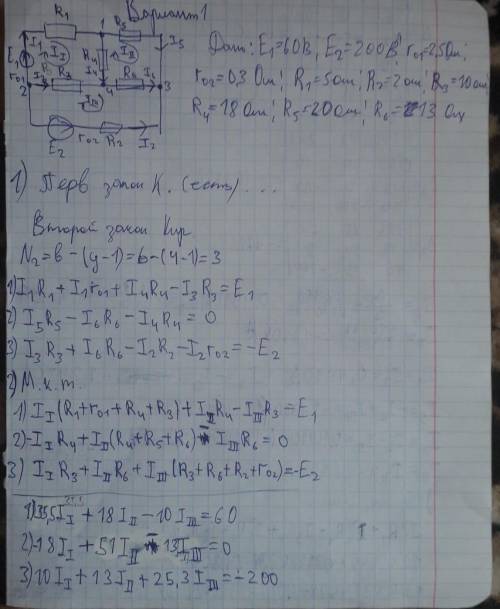 Вариант 1
R₁ 1 R₅
I₁ I_I R₄ I_II I₅
E₁ I₄
r₀₁ I₃ R₃ R₆ I₆
2 4 3
I_III
E₂ r₀₂ R₂ I₂
Дано: E₁=60В; E₂=200В; r₀₁=2,5Ом;
r₀₂=0,3 Ом; R₁=5Ом; R₂=2Ом; R₃=10Ом
R₄=18 Ом; R₅=20 Ом; R₆=13 Ом
1) Перв закон К. (есть) ...
Второй закон Кир
N₂=в-(у-1)=6-(4-1)=3
1) I₁R₁+I₁r₀₁+I₄R₄-I₃R₃=E₁
2) I₅R₅-I₆R₆-I₄R₄=0
3) I₃R₃+I₆R₆-I₂R₂-I₂r₀₂=-E₂
2) М.к.т.
1) I_I(R₁+r₀₁+R₄+R₃)+I_II R₄-I_III R₃=E₁
2) -I_I R₄+I_II(R₄+R₅+R₆)-I_III R₆=0
3) I_I R₃+I_II R₆+I_III(R₃+R₆+R₂+r₀₂)=-E₂
1) 35,5I_I+18I_II-10I_III=60
2) -18I_I+51I_II-13I_III=0
3) 10I_I+13I_II+25,3I_III=-200